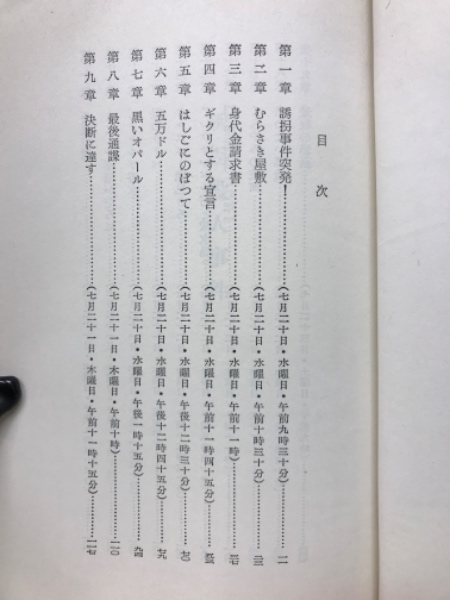 目次
第一章 誘拐事件突発！…………(七月二十日・水曜日・午前九時三十分)………一一
第二章 むらさき屋敷…………(七月二十日・水曜日・午前十時三十分)………二三
第三章 身代金請求書…………(七月二十日・水曜日・午前十一時)………三七
第四章 ギクリとする宣言…………(七月二十日・水曜日・午前十一時四十五分)………五三
第五章 はしごにのぼつて…………(七月二十日・水曜日・午後十二時三十分)………七〇
第六章 五万ドル…………(七月二十日・水曜日・午後十二時四十五分)………七九
第七章 黒いオパール…………(七月二十日・水曜日・午後一時十五分)………九四
第八章 最後通諜…………(七月二十一日・木曜日・午前十時)………一一〇
第九章 決断に達す…………(七月二十一日・木曜日・午前十一時十五分)………一二七